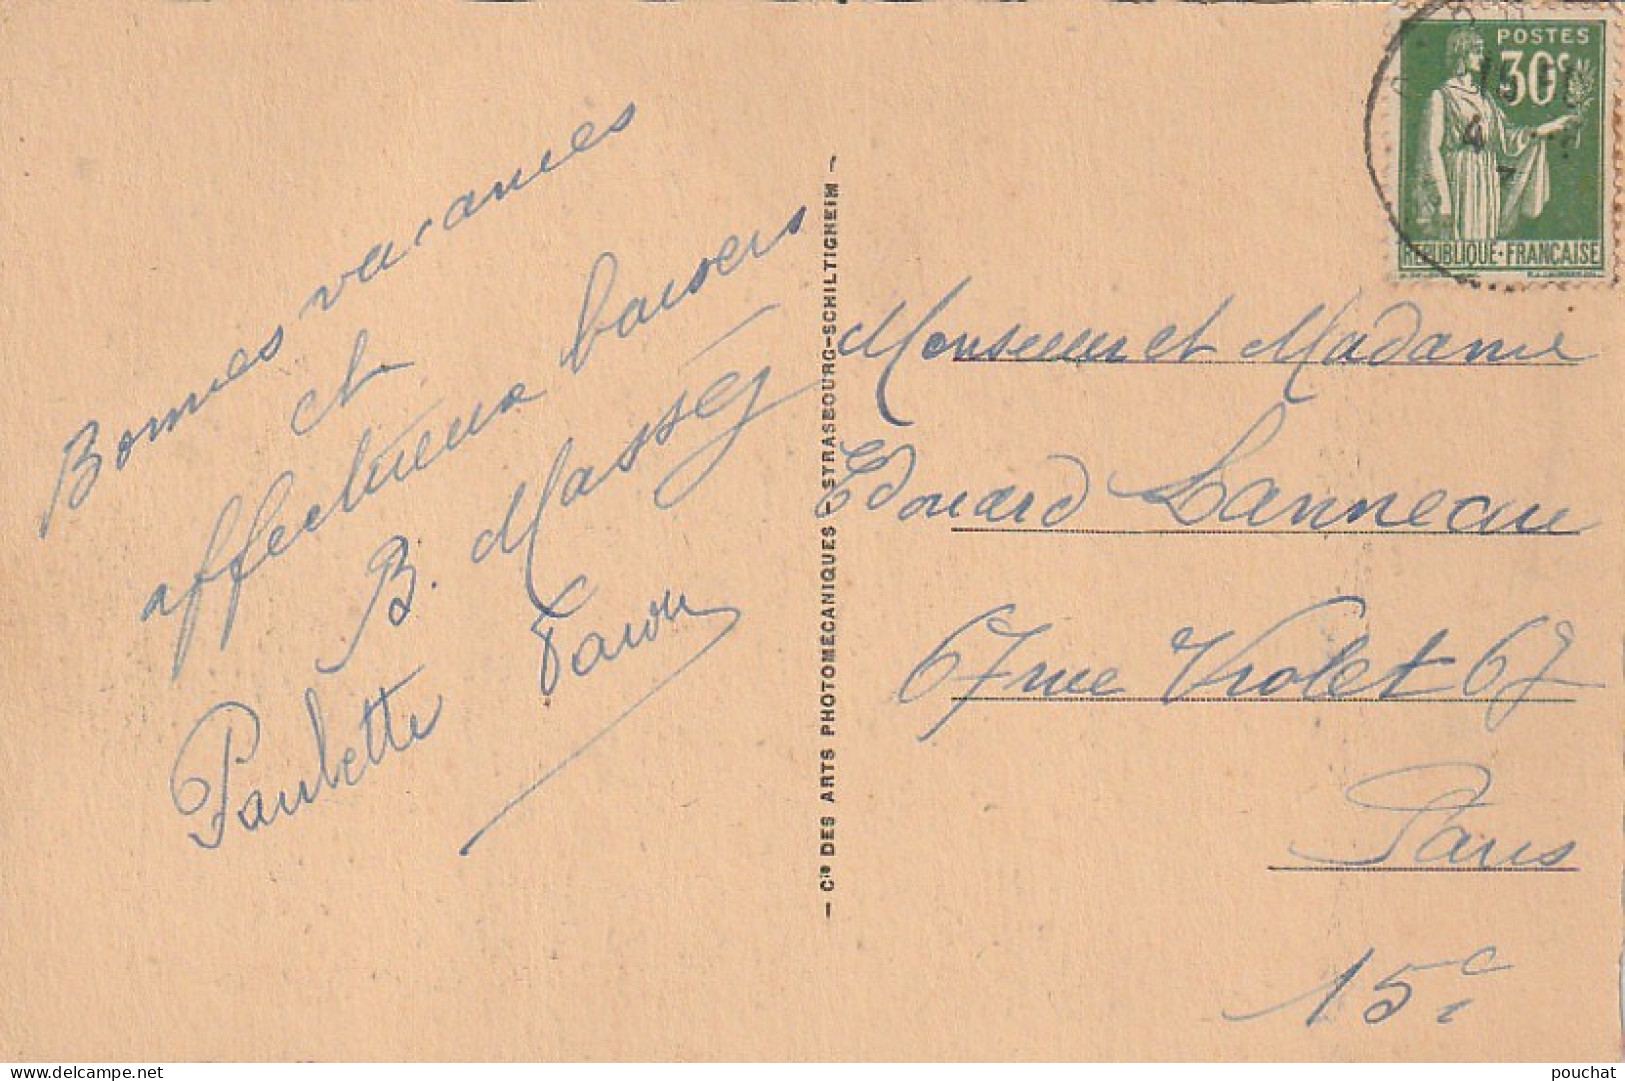 Bonnes vacances
et
affectueux baisers
B. Massey
Paulette
— Cie DES ARTS PHOTOMECANIQUES - STRASBOURG-SCHILTIGHEIM —
POSTES
30c
15 H
4
REPUBLIQUE·FRANÇAISE
Monsieur et Madame
Edouard Lanneau
67 rue Violet 67
Paris
15e
pouchat